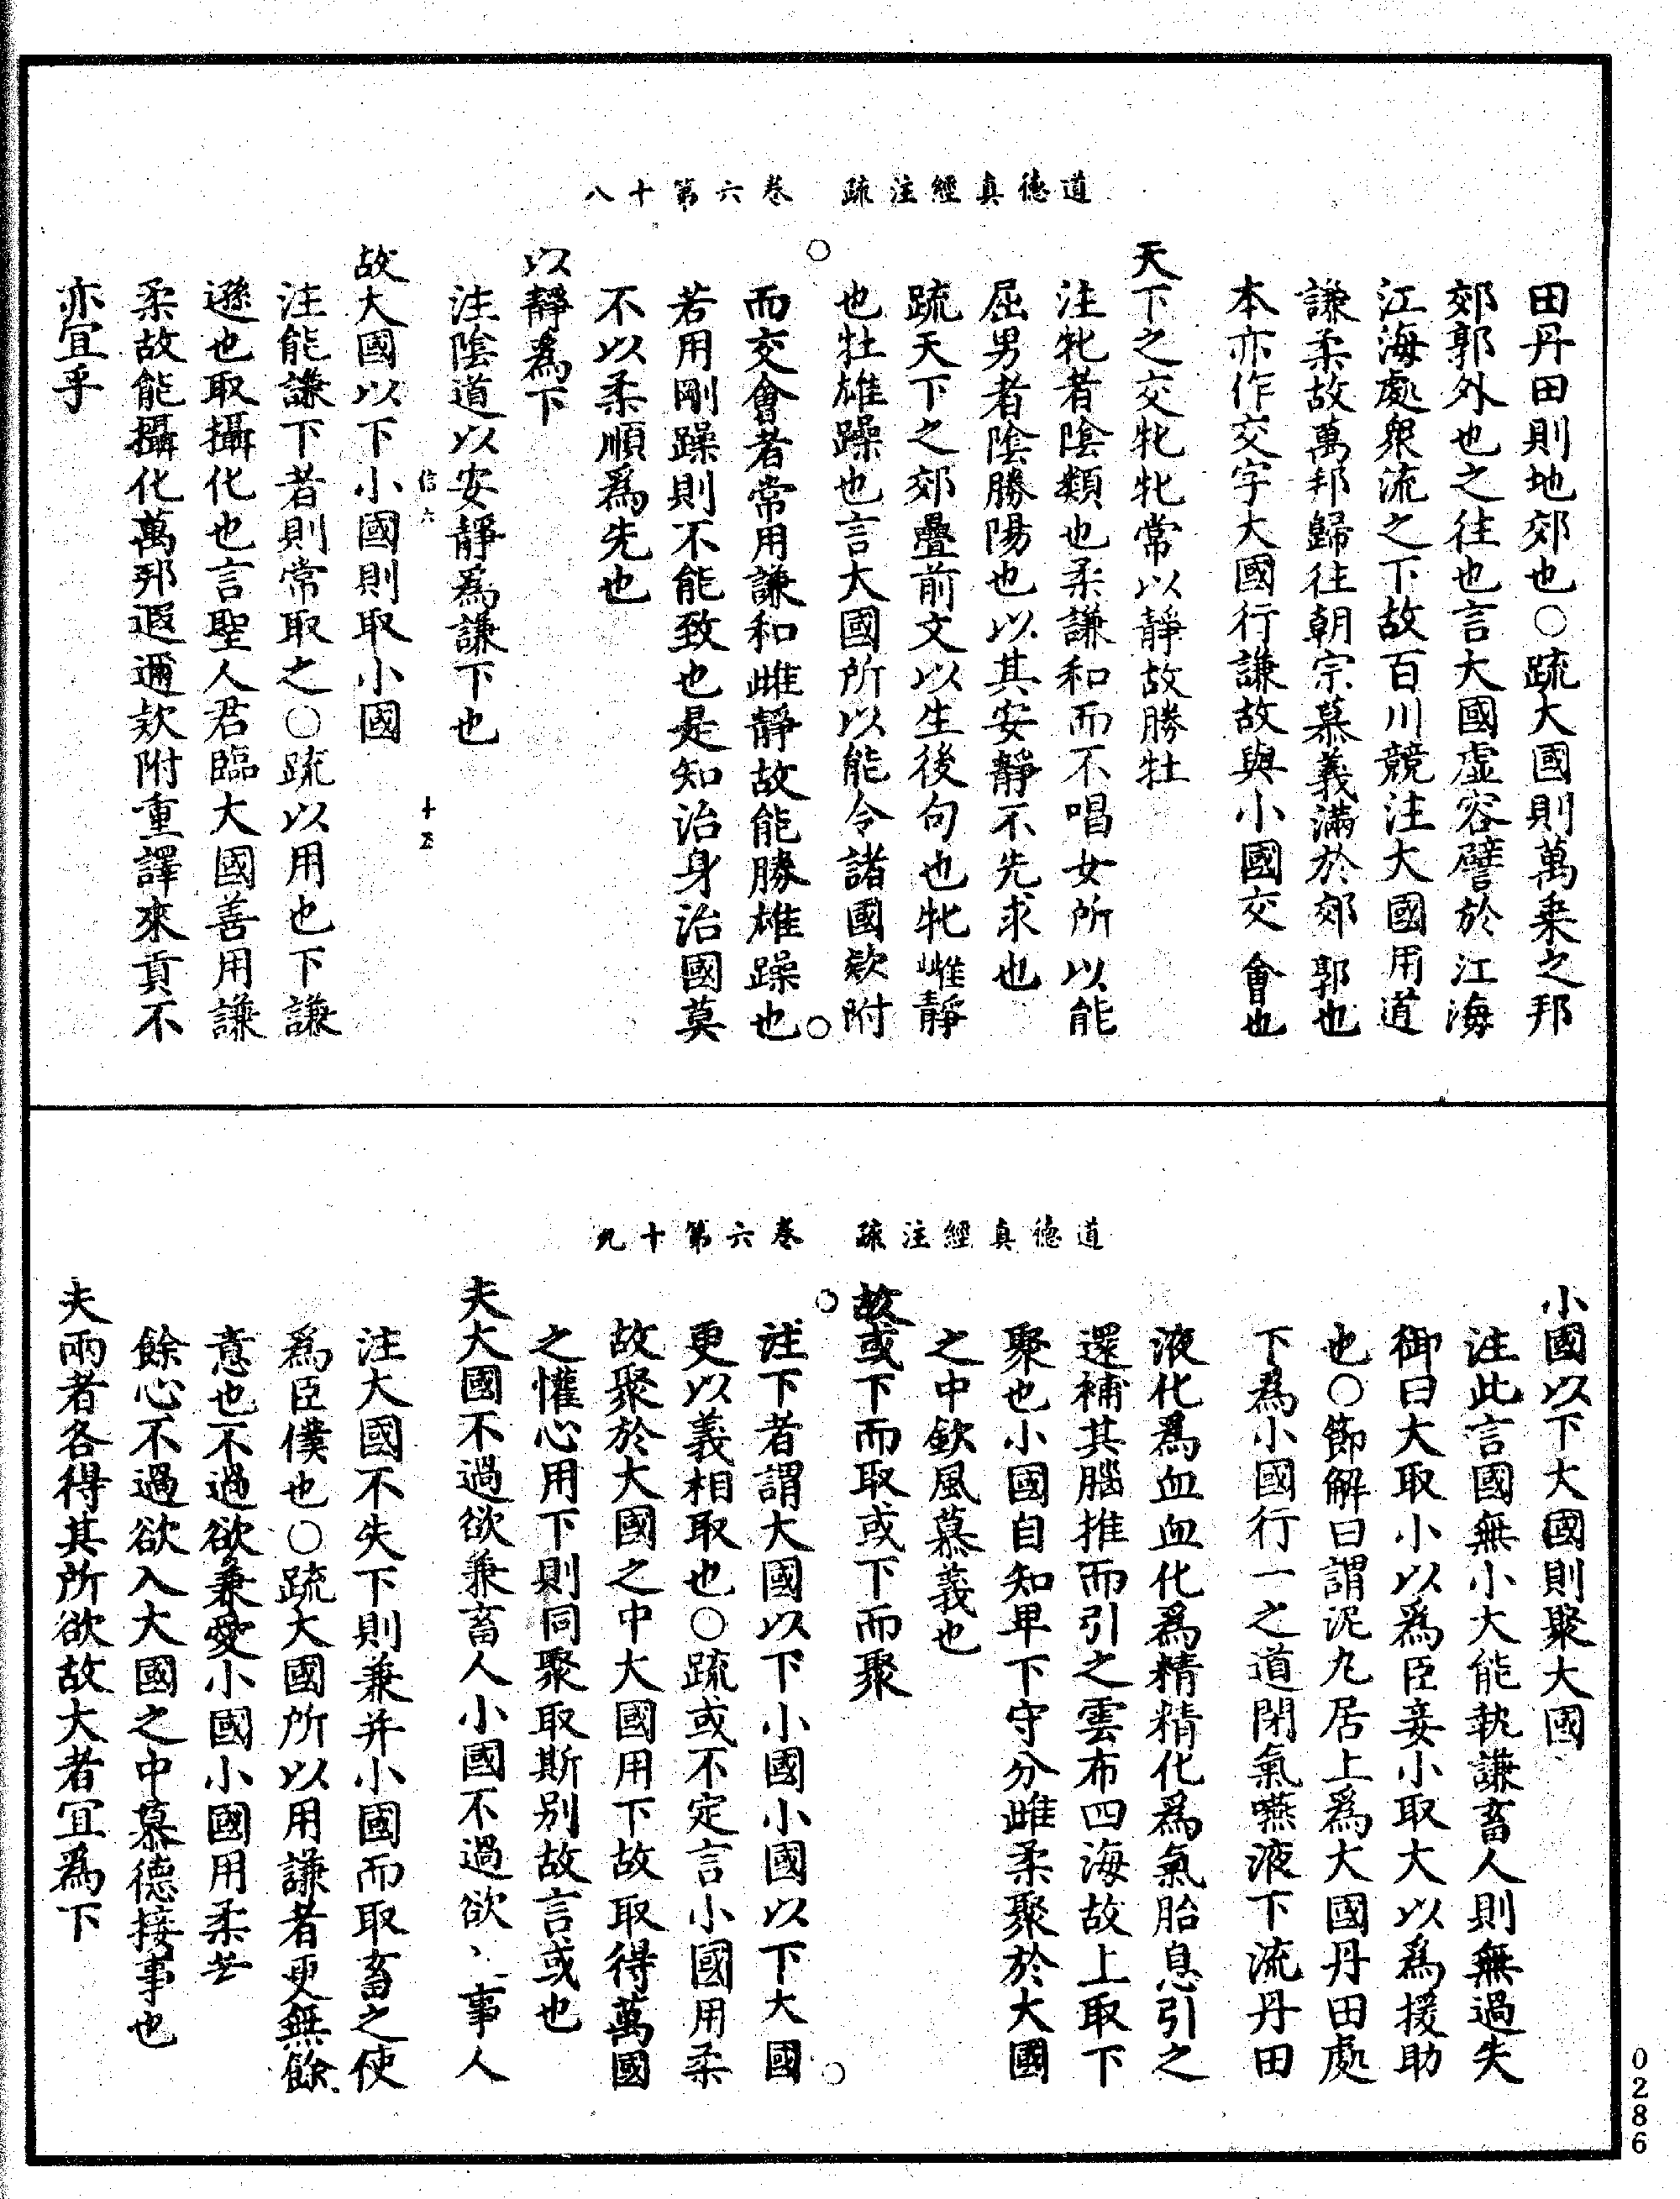 道德真經注疏　卷六第十八
田丹田則地郊也○疏大國則萬乘之邦
郊郭外也之往也言大國虛容譬於江海
江海處衆流之下故百川競注大國用道
謙柔故萬邦歸往朝宗慕義滿於郊郭也
本亦作交字大國行謙故與小國交會也
天下之交牝牝常以靜故勝牡
注牝者陰類也柔謙和而不唱女所以能
屈男者陰勝陽也以其安靜不先求也
疏天下之郊疊前文以生後句也牝雌靜
也牡雄躁也言大國所以能令諸國欵附
而交會者常用謙和雌靜故能勝雄躁也
若用剛躁則不能致也是知治身治國莫
不以柔順爲先也
以靜爲下
注陰道以安靜爲謙下也
信六　十五
故大國以下小國則取小國
注能謙下者則常取之○疏以用也下謙
遜也取攝化也言聖人君臨大國善用謙
柔故能攝化萬邦遐邇欵附重譯來貢不
亦冝乎
道德真經注疏　卷六第十九
小國以下大國則聚大國
注此言國無小大能執謙畜人則無過失
御曰大取小以爲臣妾小取大以爲援助
也○節解曰謂泥丸居上爲大國丹田處
下爲小國行一之道閉氣嚥液下流丹田
液化爲血血化爲精精化爲氣胎息引之
還補其腦推而引之雲布四海故上取下
聚也小國自知卑下守分雌柔聚於大國
之中欽風慕義也
故或下而取或下而聚
注下者謂大國以下小國小國以下大國
更以義相取也○疏或不定言小國用柔
故聚於大國之中大國用下故取得萬國
之懽心用下則同聚取斯別故言或也
夫大國不過欲兼畜人小國不過欲入事人
注大國不失下則兼并小國而取畜之使
爲臣僕也○疏大國所以用謙者更無餘
意也不過欲兼愛小國小國用柔者
餘心不過欲入大國之中慕德接事也
夫兩者各得其所欲故大者冝爲下
0286